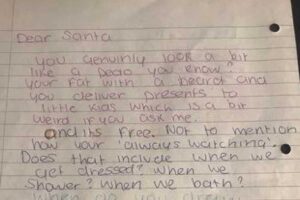 Dear Santa
you genuinly look a bit
like a pedo you know?
your fat with a beard and
you deliver presents to
little kids which is a bit
weird if you ask me.
and its free. Not to mention
how your 'always watching'.
Does that include when we
get dressed? when we
shower? when we bath?